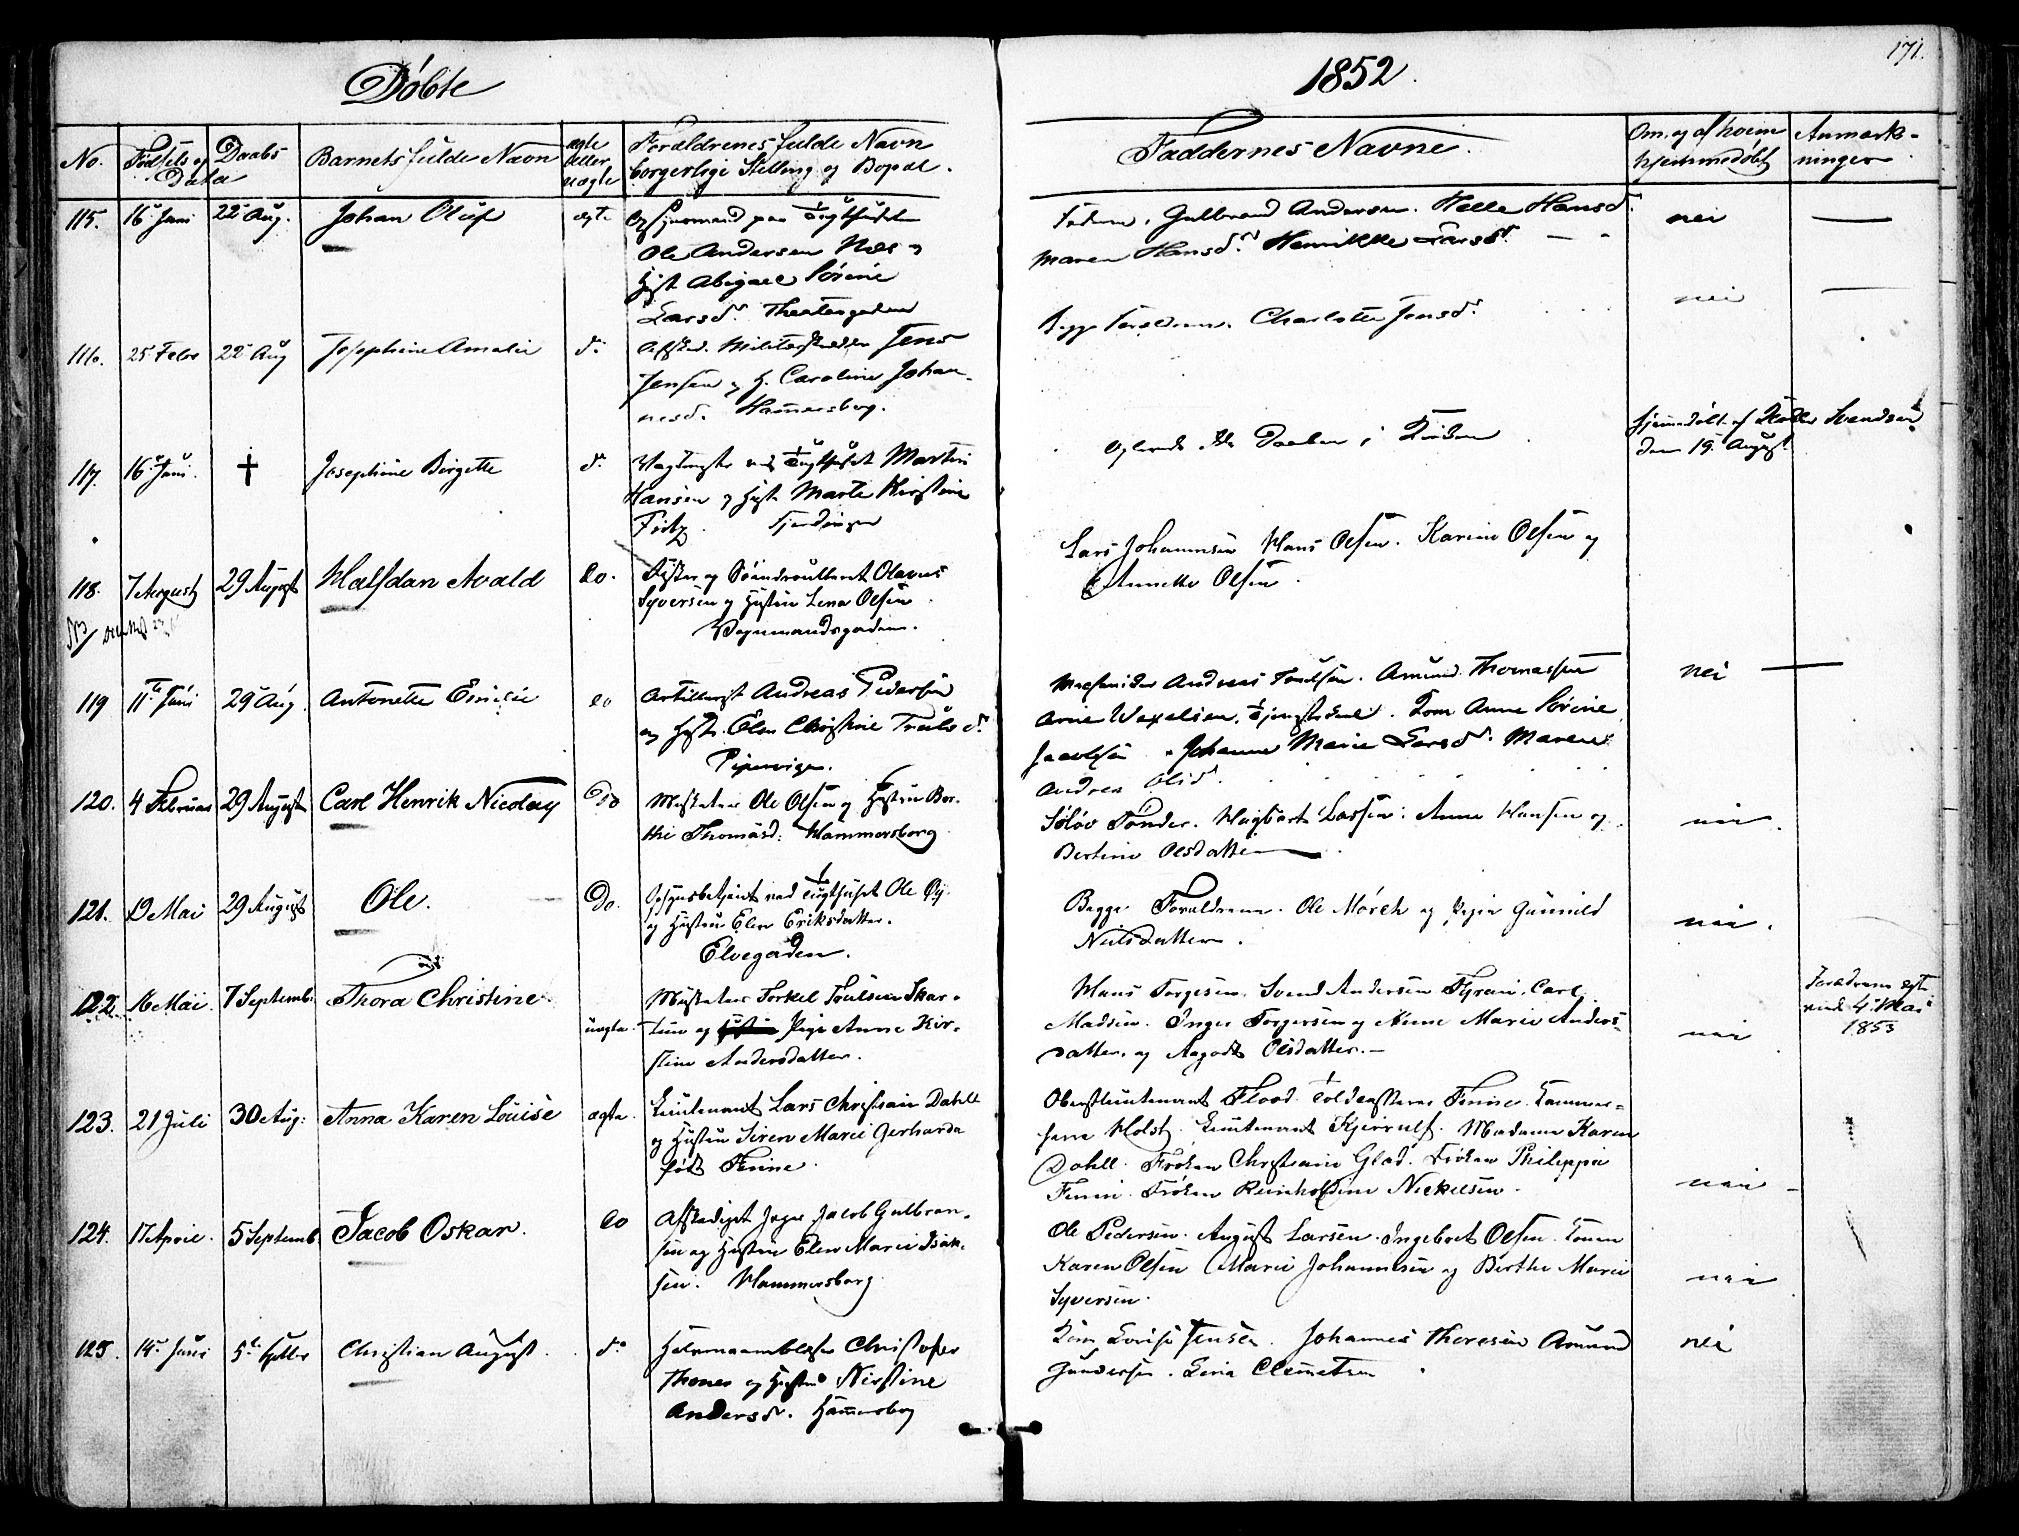 Døbte
1852.
171.
No.
Fødsels og
Daabs
Data
Barnets fulde Navn
ægte
eller
uægte
Forældrenes fulde Navn
borgerlige Stilling og Bopæl.
Faddernes Navne.
Om, og af hvem
hjemmedøbt
Anmærk-
ninger
115. 16 Juni 22 Aug. Johan Oluf ægte
Ole Andersen
Abigael Sørine
Larsd. Theatergaden
Gulbrand Andersen. Helle Hansd.
Maren Hansd. Henrikke Larsd.
nei
116. 25 Febr 22 Aug Josephine Amalie do
Afsked. Jens
Jensen og H. Caroline Johan-
nesd. Hammersborg.
Begge Forældrene. Charlotte Jensd.
nei
117. 16 Juni. † Josephine Birgitte do
ved Tugthuset Martin
Hansen og Hust. Marte Kirstine
Fritz. Fjerdingen
Daaben i Kirken
hjemmedøbt af Svendsen
den 19 August
118. 7 August 29 August Halfdan Avald do.
Fisker og Olavus
Syversen og Hustru Lena Olsen
Vognmandsgaden.
Lars Johannesen Hans Olsen. Karine Olsen og
Annette Olsen.
119 11te Juni 29 Aug. Antonette Emilie do
Artillerist Andreas Pedersen
og Hustr. Elen Christine Truls d.
Pipervigen.
Andreas Amund Thomassen
Arne Anne Sørine
Jacobsen. Johanne Marie Larsd. Maren
Andrea Olsd.
nei
120. 4 Februar 29 August Carl Henrik Nicolay Do
Musketeer Ole Olsen og Hustru Ber-
the Thomasd: Hammersborg.
Hagbart Larsen. Anne Hansen og
Bertine Olsdatter
nei.
121. 19 Mai 29 August Ole. Do.
ved Tugthuset Ole
og Hustru Elen Eriksdatter.
Elvegaden.
Begge Forældrene. Ole Mørch og Pigen Gunnild
Nielsdatter.
nei.
122. 16 Mai. 7 Septemb. Thora Christine uægte.
Musketeer Torkel
og Pige Anne Kir-
stine Andersdatter.
Hans Torgersen. Svend Andersen Carl
Madsen. Inger Torgersen og Anne Marie Anders-
datter, og Olsdatter.
nei
Forældrene egte-
viede 4 Mai
1853
123. 21 Juli 30 Aug: Anna Karen Louise ægte.
Lieutenant Lars Christian Dahll
og Hustru Siren Marie Gerharda
født Finne.
Oberstlieutenant Flood. Toldkasserer Finne.
Holst. Lieutenant Kjerulf. Madame Karen
Dahll. Frøken Christiane Glad. Frøken Philippa
Finne. Frøken Reinholdine Nickelsen.
nei
124. 17 April. 5 Septemb. Jacob Oskar. do
Afskediget Jæger Jacob Gulbran-
sen og Hustru Elen Marie Isak-
sen. Hammersborg.
Ole Pedersen. August Larsen. Ingebret Olsen. Konen
Karen Olsen Marie Johannesen og Birthe Marie
Syversen.
nei
125. 14 Juni 5te Septbr Christian August. do
Christofer
Thones og Hustru Kirstine
Andersd. Hammersborg
Jensen. Johannes Amund
Gundersen. Lina Clemetsen
nei